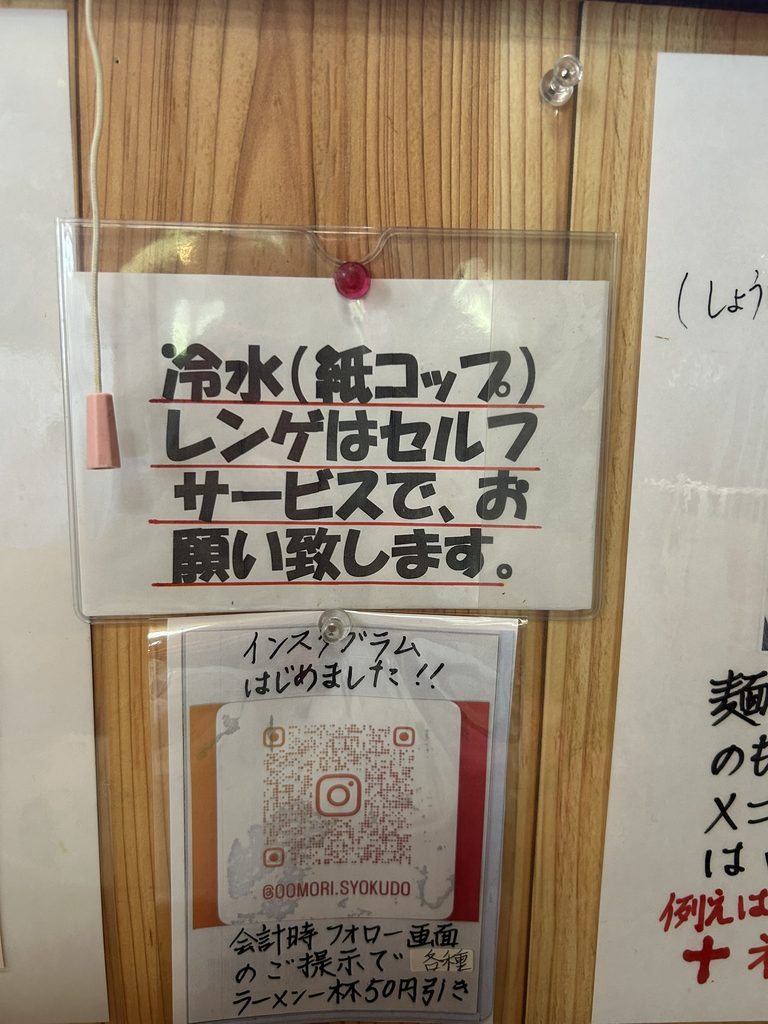 冷水(紙コップ)
レンゲはセルフ
サービスで、お
願い致します。
インスタグラム
はじめました!!
@OOMORI.SYOKUDO
会計時フォロー画面
のご提示で各種
ラーメン一杯50円引き
(しょう
麺
のも
メニ
は
例えば
+